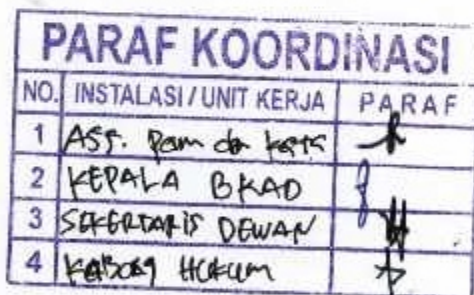 PARAF KOORDINASI
NO. INSTALASI / UNIT KERJA PARAF
1 ASS. Pem da kesra
2 KEPALA BKAD
3 SEKERTARIS DEWAN
4 KABAG HUKUM